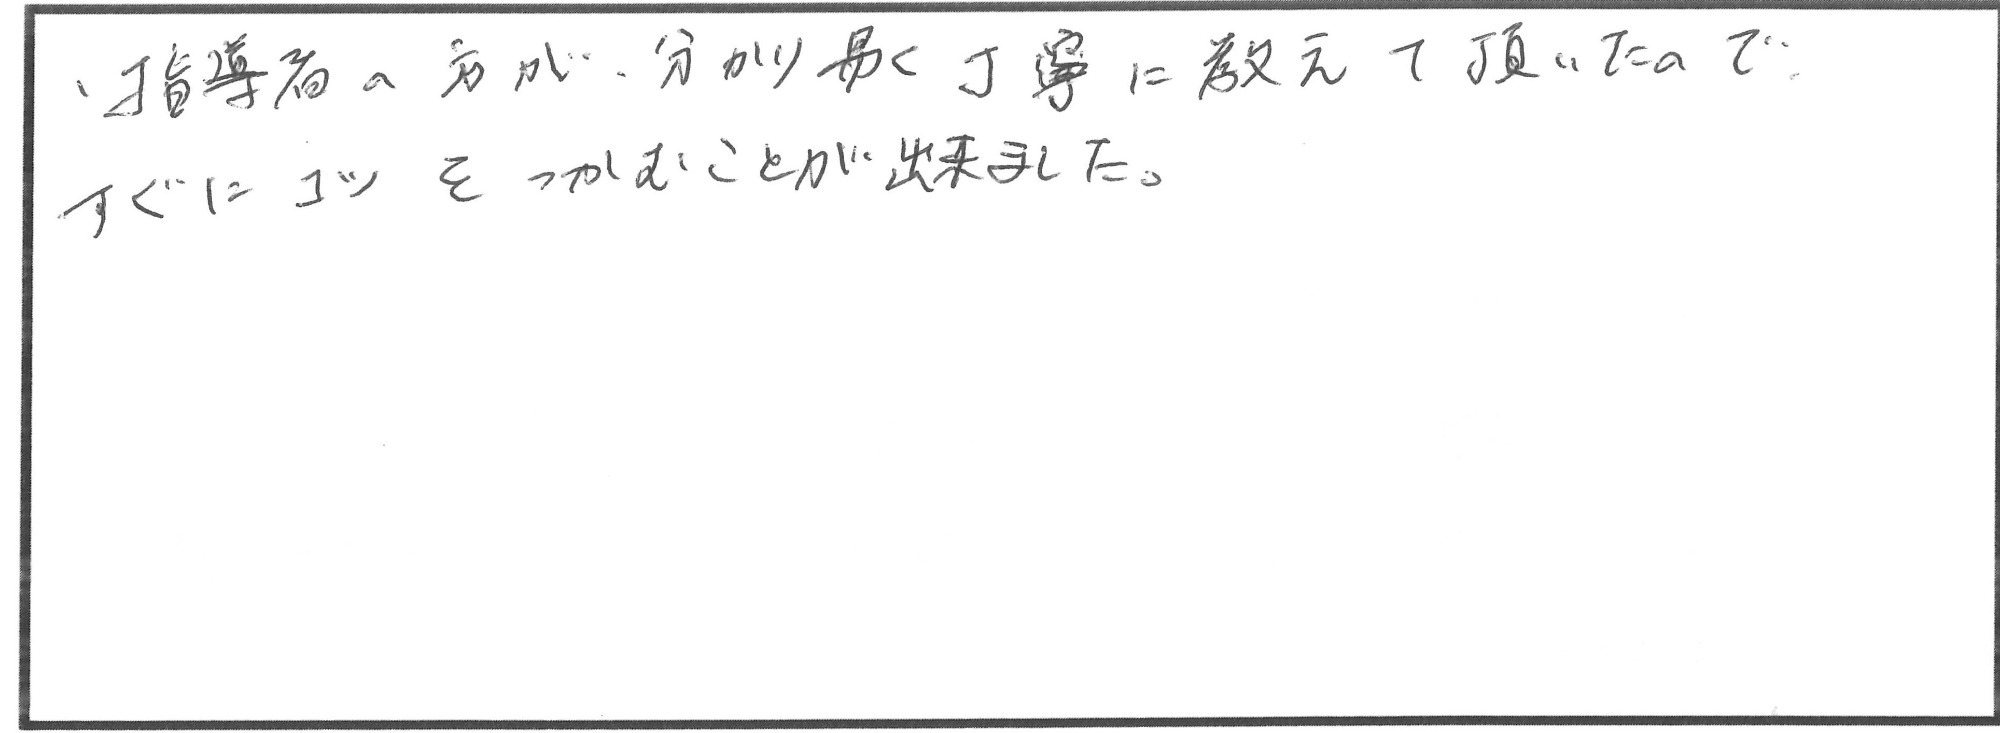 ・指導者の方が、分かり易く丁寧に教えて頂いたので、
すぐにコツをつかむことが出来ました。